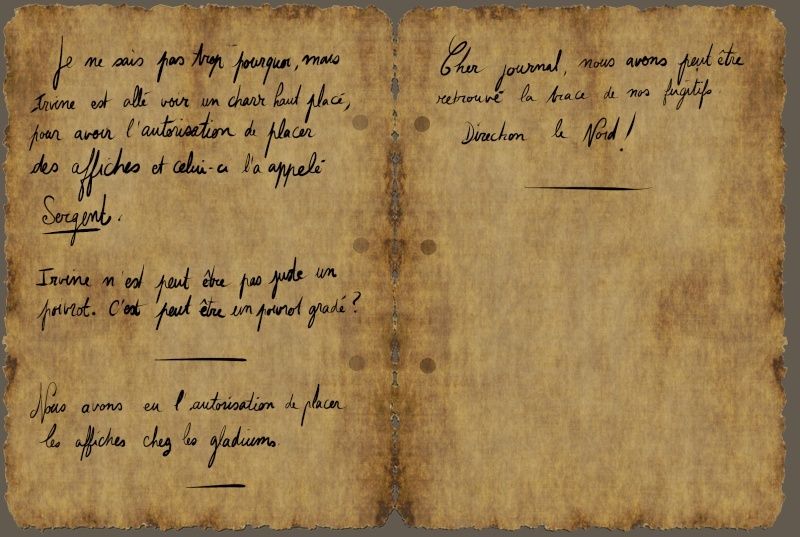 Je ne sais pas trop pourquoi, mais
Irvine est allé voir un charr haut placé,
pour avoir l'autorisation de placer
des affiches et celui-ci l'a appelé
Sergent.
Irvine n'est peut être pas juste un
poivrot. C'est peut être un poivrot gradé?
Nous avons eu l'autorisation de placer
les affiches chez les gladiums.
Cher journal, nous avons peut être
retrouvé la trace de nos fugitifs.
Direction le Nord!